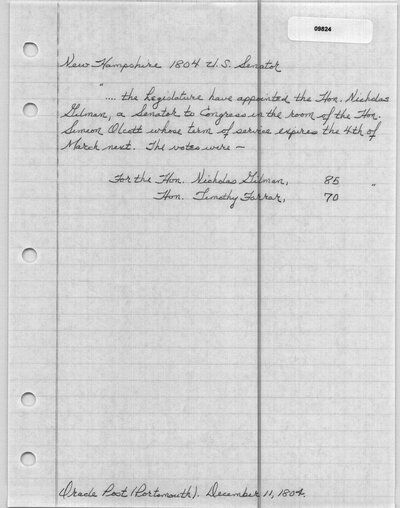 09824
New Hampshire 1804 U.S. Senator
".... the Legislature have appointed the Hon. Nicholas
Gilman, a Senator to Congress in the room of the Hon.
Simeon Olcott whose term of service expires the 4th of
March next. The votes were —
For the Hon. Nicholas Gilman, 85 "
Hon. Timothy Farrar, 70
Oracle Post (Portsmouth). December 11, 1804.